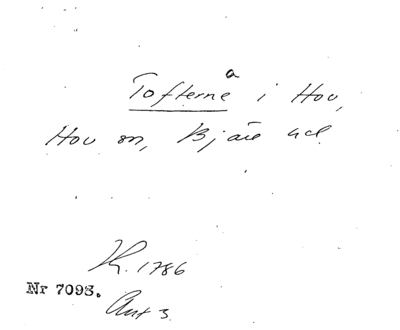 Tofterna i Hov,
Hov sn, Bjäre hd.
K. 1786
Nr 7093.
Art 3